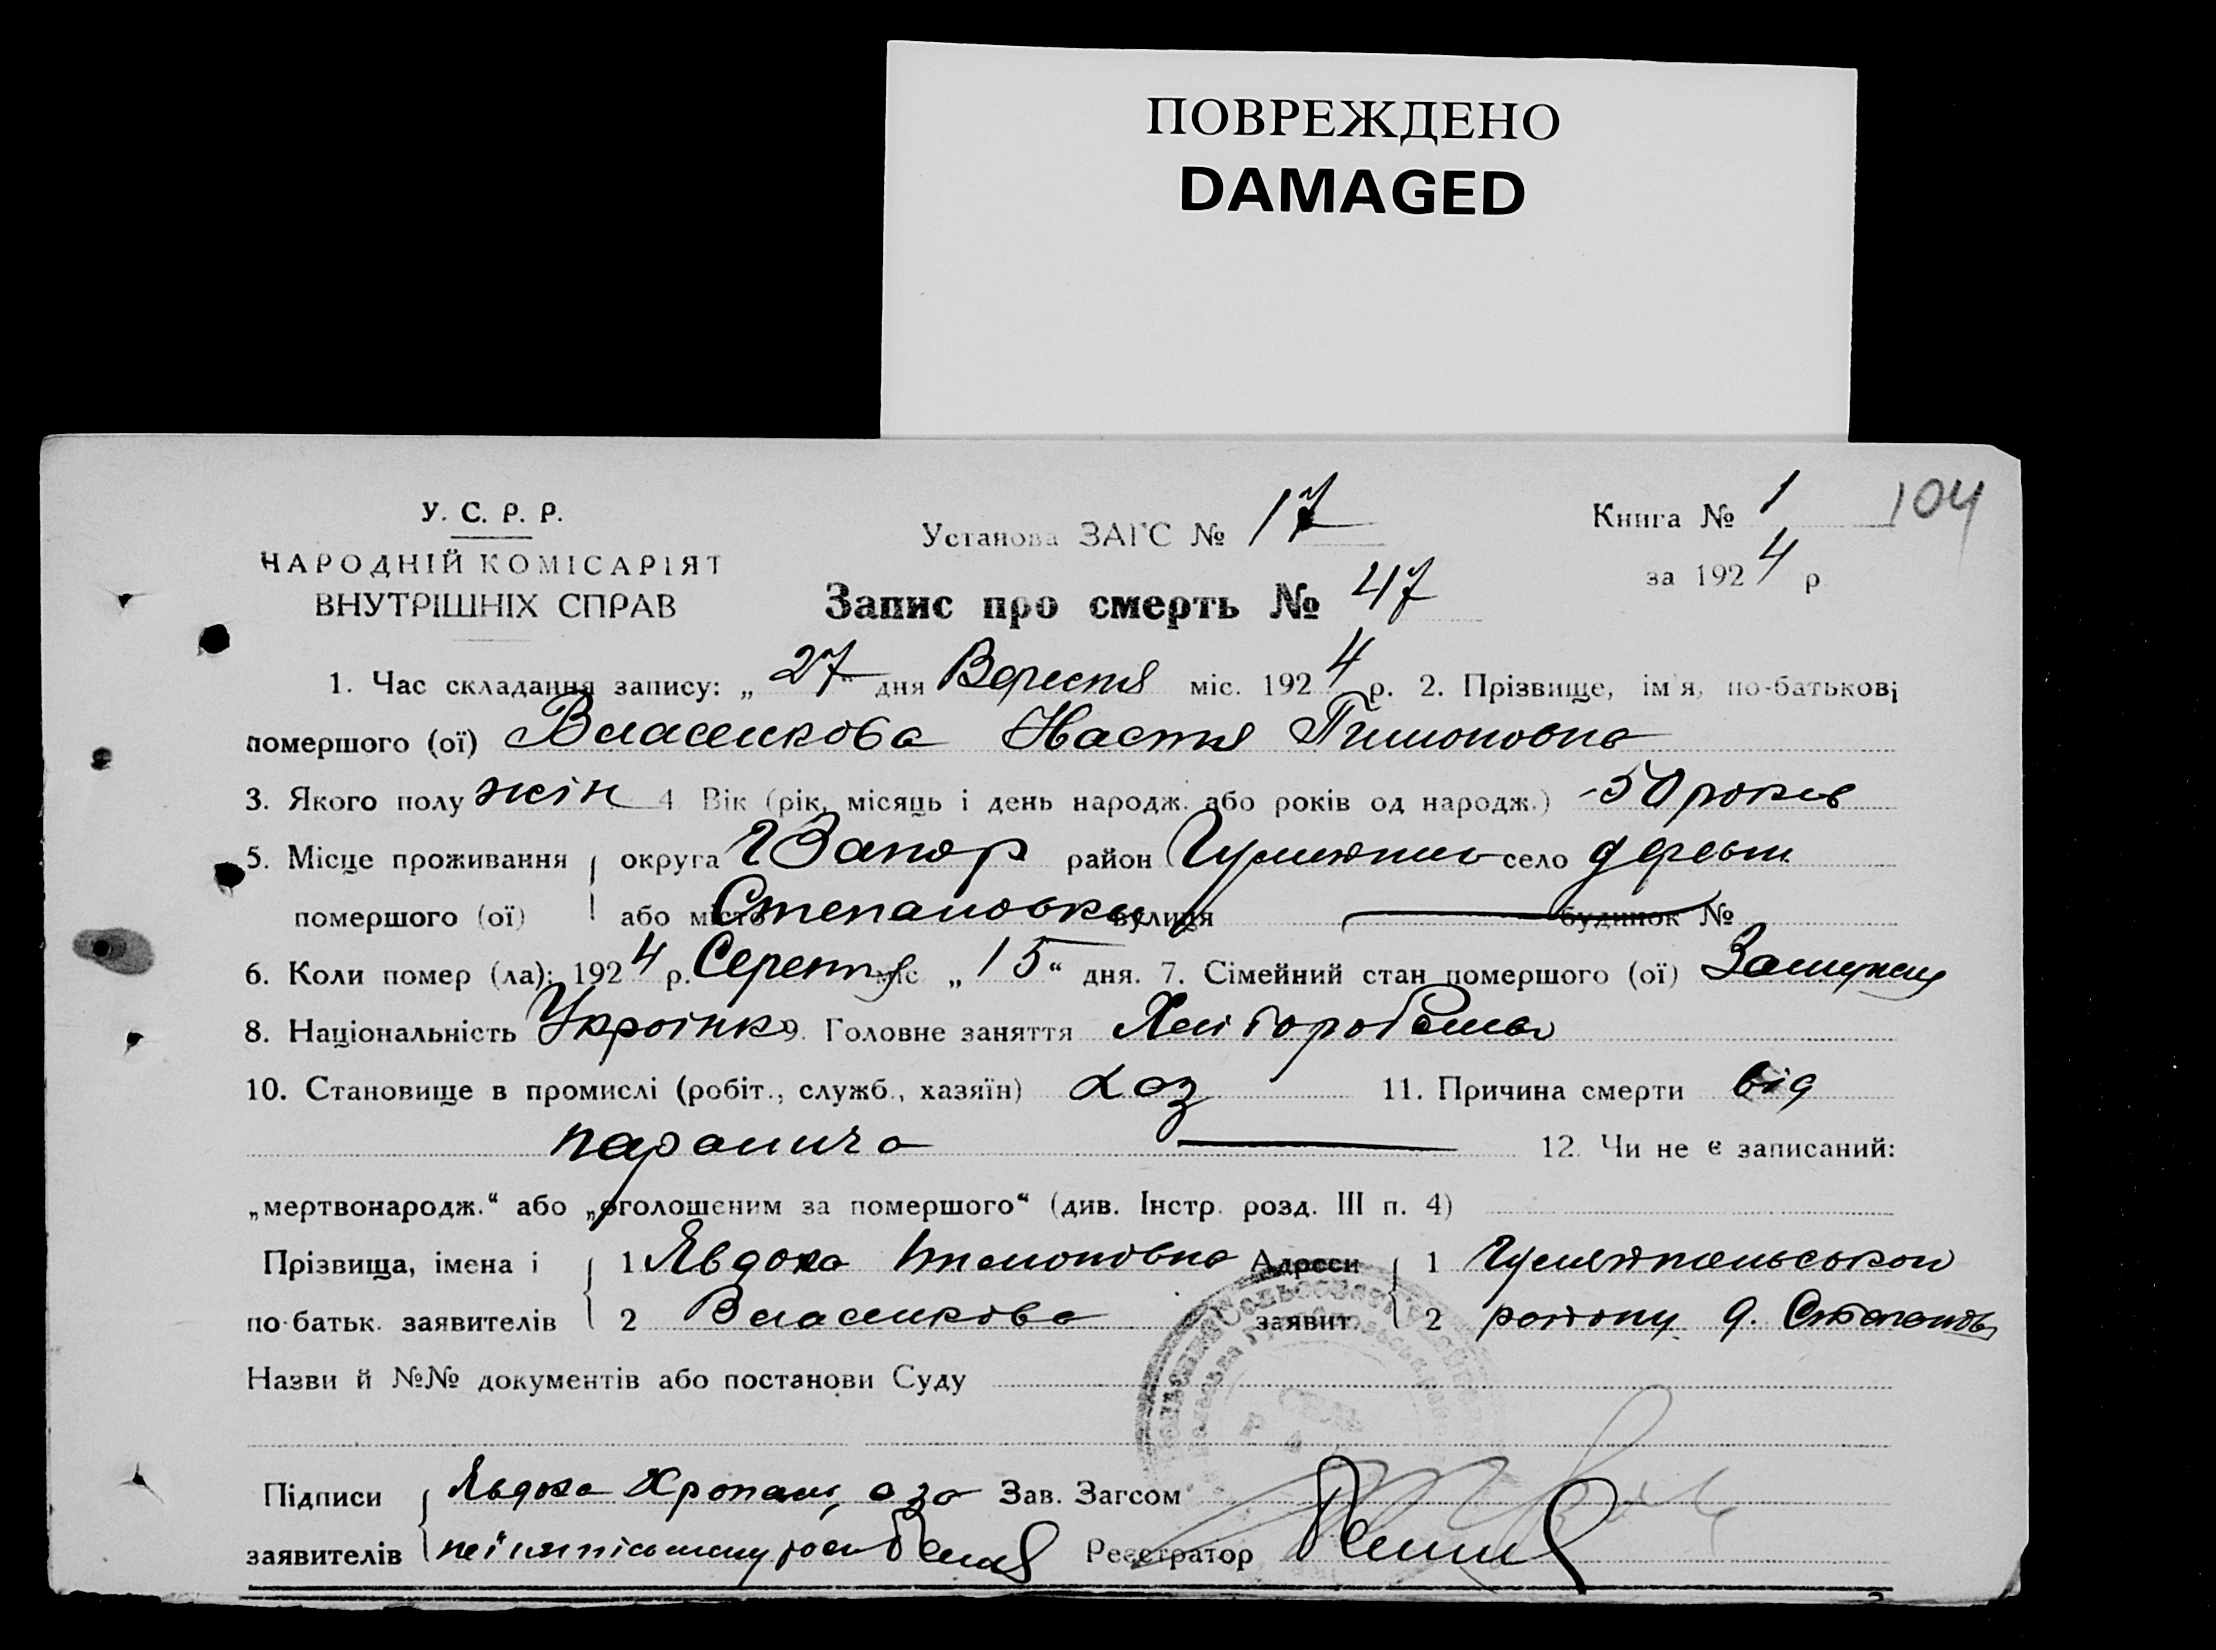 ПОВРЕЖДЕНО
DAMAGED
У. С. Р. Р.
НАРОДНІЙ КОМІСАРІЯТ
ВНУТРІШНІХ СПРАВ
Установа ЗАГС № 17
Книга № 1
104
за 1924 р
Запис про смерть № 47
1. Час складання запису: „27“ дня Вересня міс. 1924 р. 2. Прізвище, ім'я, по-батькові
помершого (ої) Власенкова Настя Тимоновна
3. Якого полу жін 4 Вік (рік, місяць і день народж. або років од народж.) 50 років
5. Місце проживання округа Запор район село деревн
помершого (ої) або місто Степановка вулиця будинок №
6. Коли помер (ла): 1924 р. Серпня міс „15“ дня. 7. Сімейний стан помершого (ої) Замужня
8. Національність Українка 9. Головне заняття Хліборобство
10. Становище в промислі (робіт., служб., хазяїн) хаз 11. Причина смерти від
паралича 12. Чи не є записаний:
„мертвонародж.“ або „оголошеним за помершого“ (див. Інстр. розд. III п. 4)
Прізвища, імена і 1 Явдоха Адреси 1
по-батьк. заявителів 2 Власенкова заявит. 2 району д.
Назви й №№ документів або постанови Суду
Підписи Явдоха а за Зав. Загсом
заявителів Реєстратор